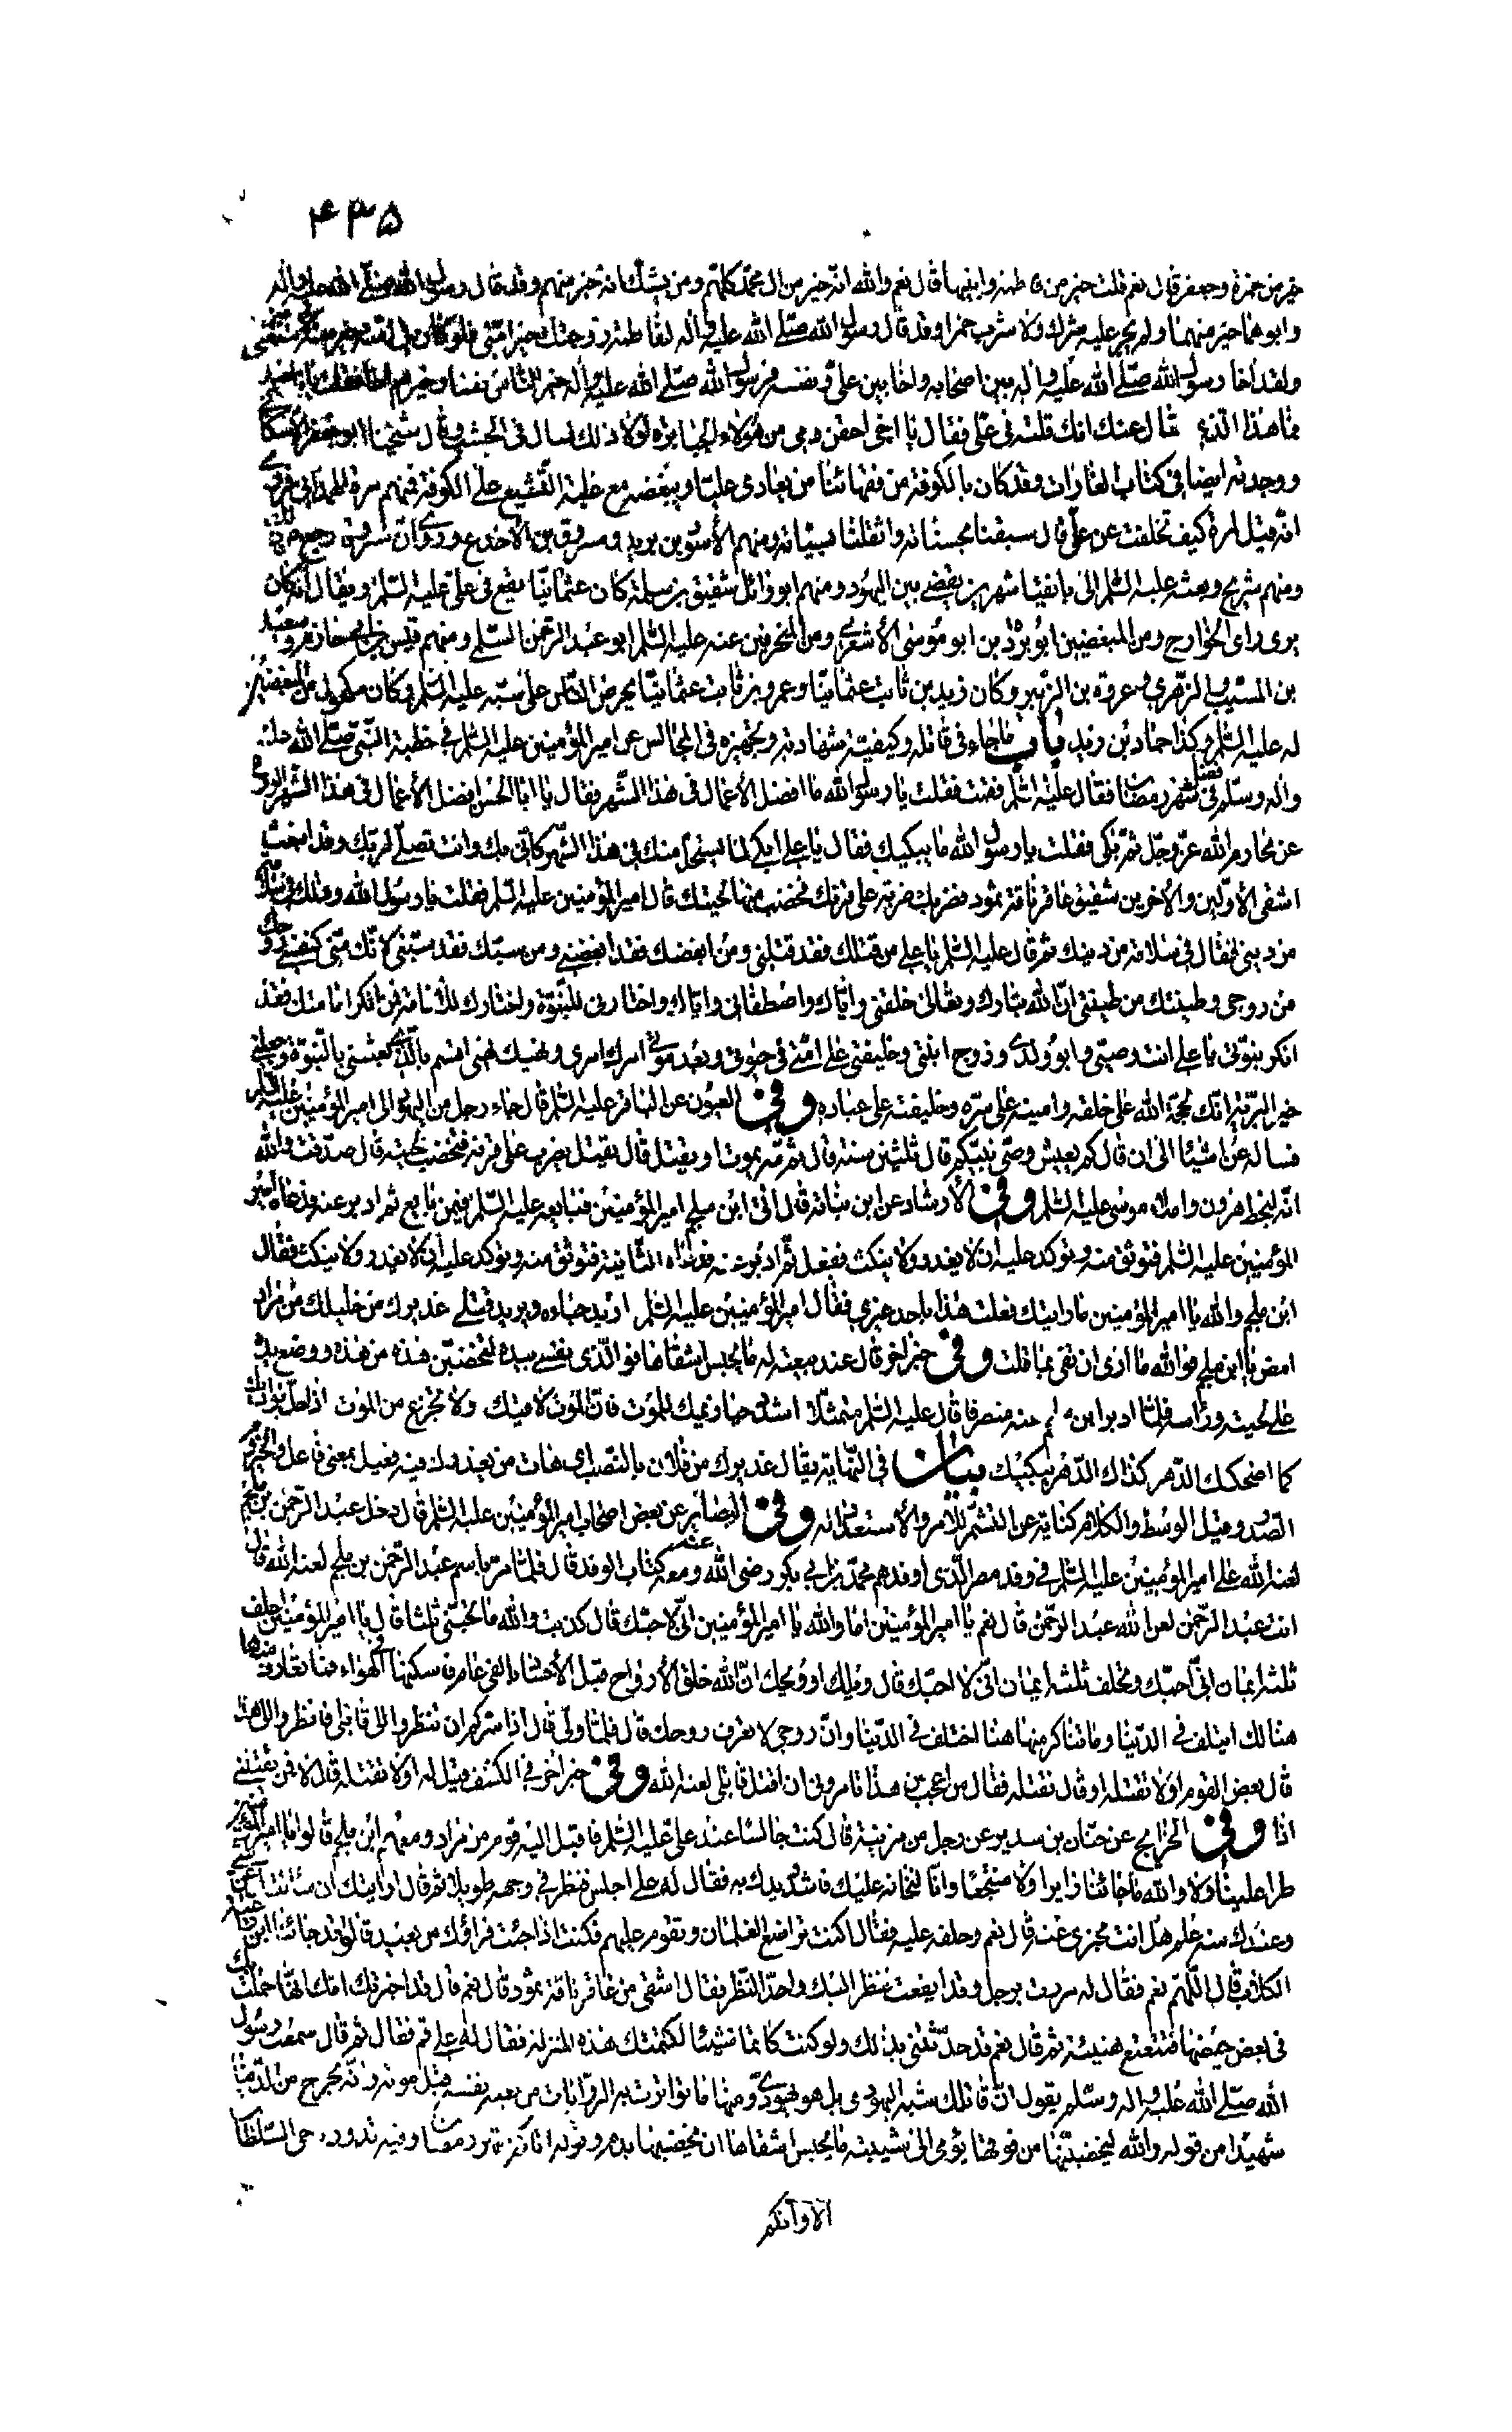 ۴۳۵
خير من حمزة وجعفر قال نعم قلت خير من فاطمة وابنيها قال نعم والله انه خير من ال محمد كلهم ومن يشك انه خير منهم وقد قال رسول الله صلى الله عليه واله
وابوهما خير منهما ولم يجر عليه شرك ولا شرب خمرا وقد قال رسول الله صلّى الله عليه واله لفاطمة زوجتك خير امتى فلو كان في امته خير منه
ولقد اخا رسول الله صلّى الله عليه واله بين اصحابه واخا بين علىّ ونفسه فرسول الله صلّى الله عليه واله خير الناس نفسا وخيرهم اخا فقلت يا با سعيد
فما هذا الذي يقال عنك انك قلته فى علىّ فقال يا اخى احقن دمى من هؤلاء الجبابرة لولا ذلك لسال فى الخشب وقال شيخنا ابو جعفر الاسكافى
ووجدته ايضا فى كتاب الغارات وقد كان بالكوفة من فقهائنا من يعادى عليّا ويبغضه مع غلبة التّشيع على الكوفة فمنهم مرة الهمداني فروى
انّه قيل لمرة كيف تخلفت عن علىّ قال سبقنا بحسناته واثقلنا بسيّاته ومنهم الأسود بن يزيد ومسروق بن الأجدع وروى ان مسروق رجع عن ذلك
ومنهم شريح وبعثه عليه السّلم الى بانقيا شهرين يقضى بين اليهود ومنهم ابو وائل شقيق بن سلمة كان عثمانيّا يقع فى علىّ عليه السّلم ويقال انه كان
يرى راى الخوارج ومن المبغضين ابو بردة بن ابو موسى الأشعري ومن المنحرفين عنه عليه السّلم ابو عبد الرّحمن السّلمى ومنهم قيس بن ابي حازم وسعيد
بن المسيّب والزهري وعروة بن الزبير وكان زيد بن ثابت عثمانيّا وعمرو بن ثابت عثمانيّا يحرض النّاس على سبّه عليه السّلم وكان مكحول من المبغضين
له عليه السّلم وكذا حماد بن زيد باب ما جاء فى قاتله وكيفيّة شهادته وتجهيزه فى المجالس عن امير المؤمنين عليه السّلم فى خطبة النّبى صلى الله عليه
واله وسلّم فى فضل شهر رمضان فقال عليه السّلم فقمت فقلت يا رسول الله ما افضل الأعمال فى هذا الشّهر فقال يا ابا الحسن افضل الأعمال فى هذا الشهر الورع
عن محارم الله عزّ وجلّ ثمّ بكى فقلت يا رسول الله ما يبكيك فقال يا على ابكى لما يستحل منك فى هذا الشّهر كانّى بك وانت تصلّى لربّك وقد انبعث
اشقى الأوّلين والأخرين شقيق عاقر ناقة ثمود فضربك ضربة على قرنك فخضب منها لحيتك قال امير المؤمنين عليه السّلم فقلت يا رسول الله وذلك فى سلامة
من دينى فقال فى سلامة من دينك ثم قال عليه السّلم يا على من قتلك فقد قتلنى ومن ابغضك فقد ابغضنى ومن سبّك فقد سبّنى لانّك منّى كنفسى روحك
من روحى وطينتك من طينتى انّ الله تبارك وتعالى خلقنى وايّاك واصطفانى وايّاك واختارنى للنّبوّة واختارك للأمامة فمن انكر امامتك فقد
انكر نبوّتى يا على انت وصيّى وابو ولدى وزوج ابنتى وخليفتى على امّتى فى حيوتى وبعد موتى امرك امرى ونهيك نهيى اقسم بالّذى بعثنى بالنّبوّة وجعلنى
خير البريّة انّك لحجّة الله على خلقه وامينه على سرّه وخليفته على عباده وفى العيون عن الباقر عليه السّلم قال جاء رجل من اليهود الى امير المؤمنين عليه السّلم
فساله عن اشياء الى ان قال كم يعيش وصىّ نبيّكم قال ثلثين سنة قال ثمّ مه يموت او يقتل قال يقتل يضرب على قرنه فتخضب لحيته قال صدقت والله
انّه لبخط هرون واملاء موسى عليه السّلم وفى الأرشاد عن ابن نباتة قال اتى ابن ملجم امير المؤمنين فبايعه عليه السّلم فيمن بايع ثم ادبر عنه فدعاه امير
المؤمنين عليه السّلم فتوثق منه وتوكد عليه ان لا يغدر ولا ينكث ففعل ثمّ ادبر عنه فدعاه الثّانية فتوثق منه وتوكد عليه ان لا يغدر ولا ينكث فقال
ابن ملجم والله يا امير المؤمنين ما رايتك فعلت هذا باحد غيرى فقال امير المؤمنين عليه السّلم اريد حباءه ويريد قتلى عذيرك من خليلك من مراد
امض يا ابن ملجم فوالله ما ارى ان تفى بما قلت وفى خبر اخر قال عند بيعته له ما يحبس اشقاها فوالّذى نفسى بيده لتخضبنّ هذه من هذه ووضع يده
على لحيته وراسه فلمّا ادبر ابن ملجم عنه منصرفا قال عليه السّلم متمثّلا اشدد حيازيمك للموت فانّ الموت لاقيك ولا تجزع من الموت اذا حلّ بواديك
كما اضحكك الدّهر كذاك الدّهر يبكيك بيان فى النّهاية يقال عذيرك من فلان بالنّصب اى هات من يعذرك فيه فعيل بمعنى فاعل والحيزوم
الصّدر وقيل الوسط والكلام كناية عن التّشمّر للأمر والأستعداد له وفى البصائر عن بعض اصحاب امير المؤمنين عليه السّلم قال دخل عبد الرّحمن بن ملجم
لعنه الله على امير المؤمنين عليه السّلم فى وفد مصر الّذى اوفدهم محمّد بن ابى بكر رضى الله عنه ومعه كتاب الوفد قال فلمّا مرّ باسم عبد الرّحمن بن ملجم لعنه الله قال
انت عبد الرّحمن لعن الله عبد الرّحمن قال نعم يا امير المؤمنين اما والله يا امير المؤمنين انّى لاحبّك قال كذبت والله ما تحبّنى ثلثا قال يا امير المؤمنين احلف
ثلثة ايمان انّى احبّك وتحلف ثلثة ايمان انّى لا احبّك قال ويلك او ويحك انّ الله خلق الأرواح قبل الأجساد بالفى عام فاسكنها الهواء فما تعارف منها
هنالك ائتلف فى الدّنيا وما تناكر منها هنا اختلف فى الدّنيا وانّ روحى لا تعرف روحك قال فلمّا ولّى قال اذا سركم ان تنظروا الى قاتلى فانظروا الى هذا
قال بعض القوم اولا تقتله او قال نقتله فقال من اعجب من هذا تامرونى ان اقتل قاتلى لعنه الله وفى خبر اخر فى الكشف قيل له اولا تقتله قال لا فمن يقتلنى
اذا وفى الخرايج عن حنّان بن سدير عن رجل من مزينة قال كنت جالسا عند علىّ عليه السّلم فاقبل اليه قوم من مراد ومعهم ابن ملجم قالوا يا امير المؤمنين
طرا علينا ولا والله ما جائنا زايرا ولا منتجعا وانّا لنخافه عليك فاشدد يدك به فقال له على اجلس فنظر فى وجهه طويلا ثم قال ارايتك ان سالتك عن شئ
وعندك منه علم هل انت مخبرى عنه قال نعم وحلفه عليه فقال اكنت تراضع الغلمان وتقوم عليهم فكنت اذا جئت فراوك من بعيد قالوا قد جائنا ابن راعية
الكلاب قال اللّهم نعم فقال له مررت برجل وقد ايفعت فنظر اليك واحدّ النّظر فقال اشقى من عاقر ناقة ثمود قال نعم قال قد اخبرتك امّك انّها حملت بك
فى بعض حيضها فتتعتع هنيئة ثم قال نعم قد حدّثتنى بذلك ولو كنت كاتما شيئا لكتمتك هذه المنزلة فقال له على قم فقام ثم قال سمعت رسول
الله صلّى الله عليه واله وسلّم يقول انّ قاتلك شبه اليهودى بل هو يهودى ومنها ما تواترت به الرّوايات من نعيه نفسه قبل موته وانّه يخرج من الدّنيا
شهيدا من قوله والله ليخضبنّها من فوقها يومى الى شيبته ما يحبس اشقاها ان يخضبها بدم وقوله اتاكم شهر رمضان وفيه تدور رحى السّلطان
الا وانكم